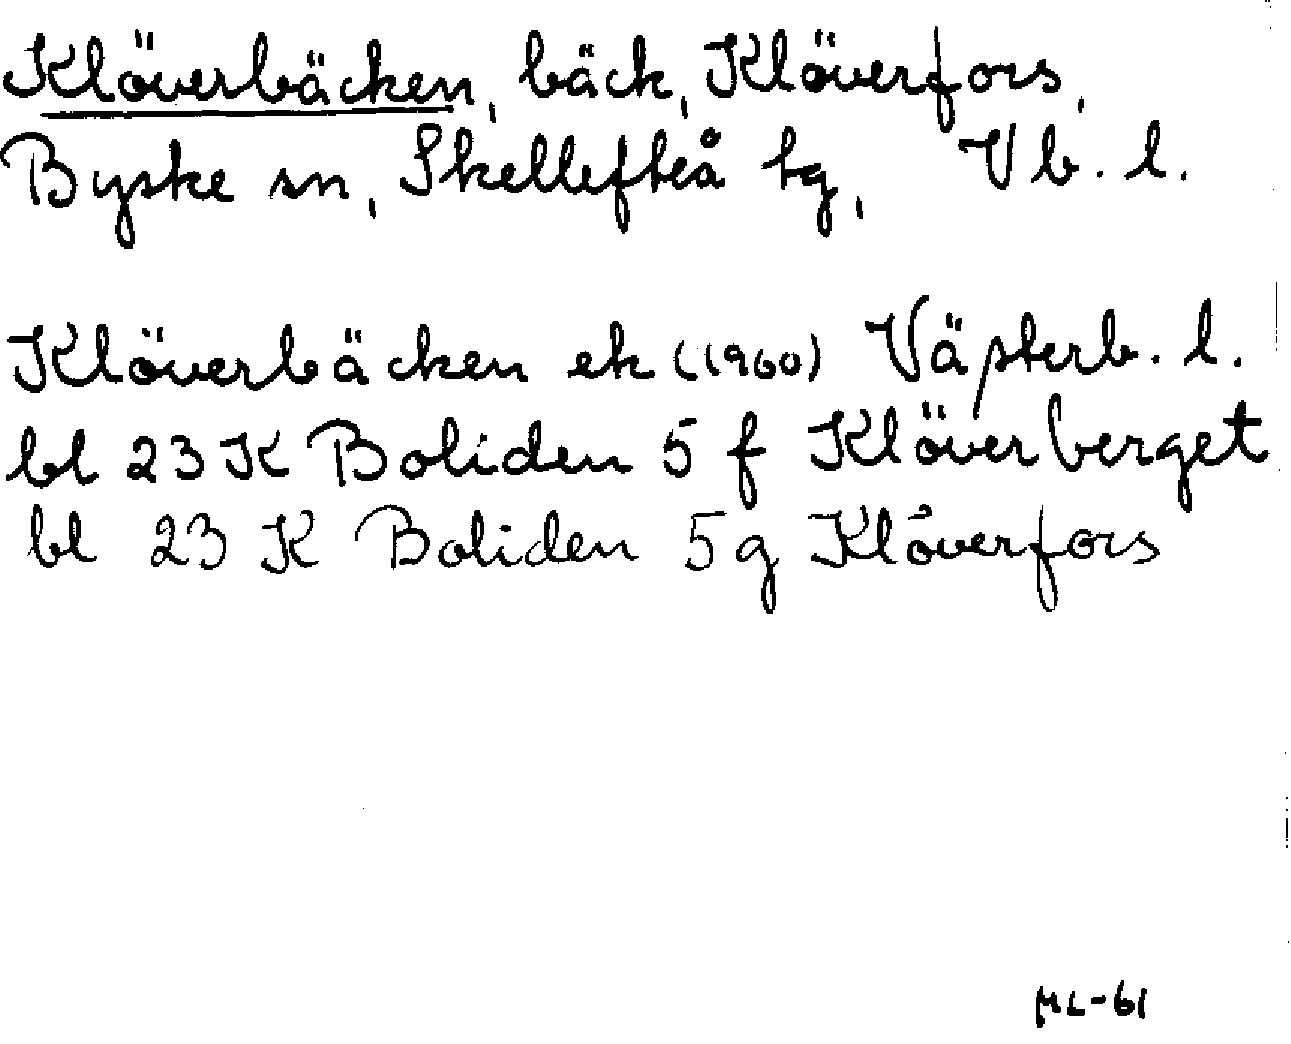 Klöverbäcken, bäck, Klöverfors,
Byske sn, Skellefteå tg, Vb. l.
Klöverbäcken ek (1960) Västerb. l.
bl 23 K Boliden 5 f Klöverberget
bl 23 K Boliden 5 g Klöverfors
ML-61